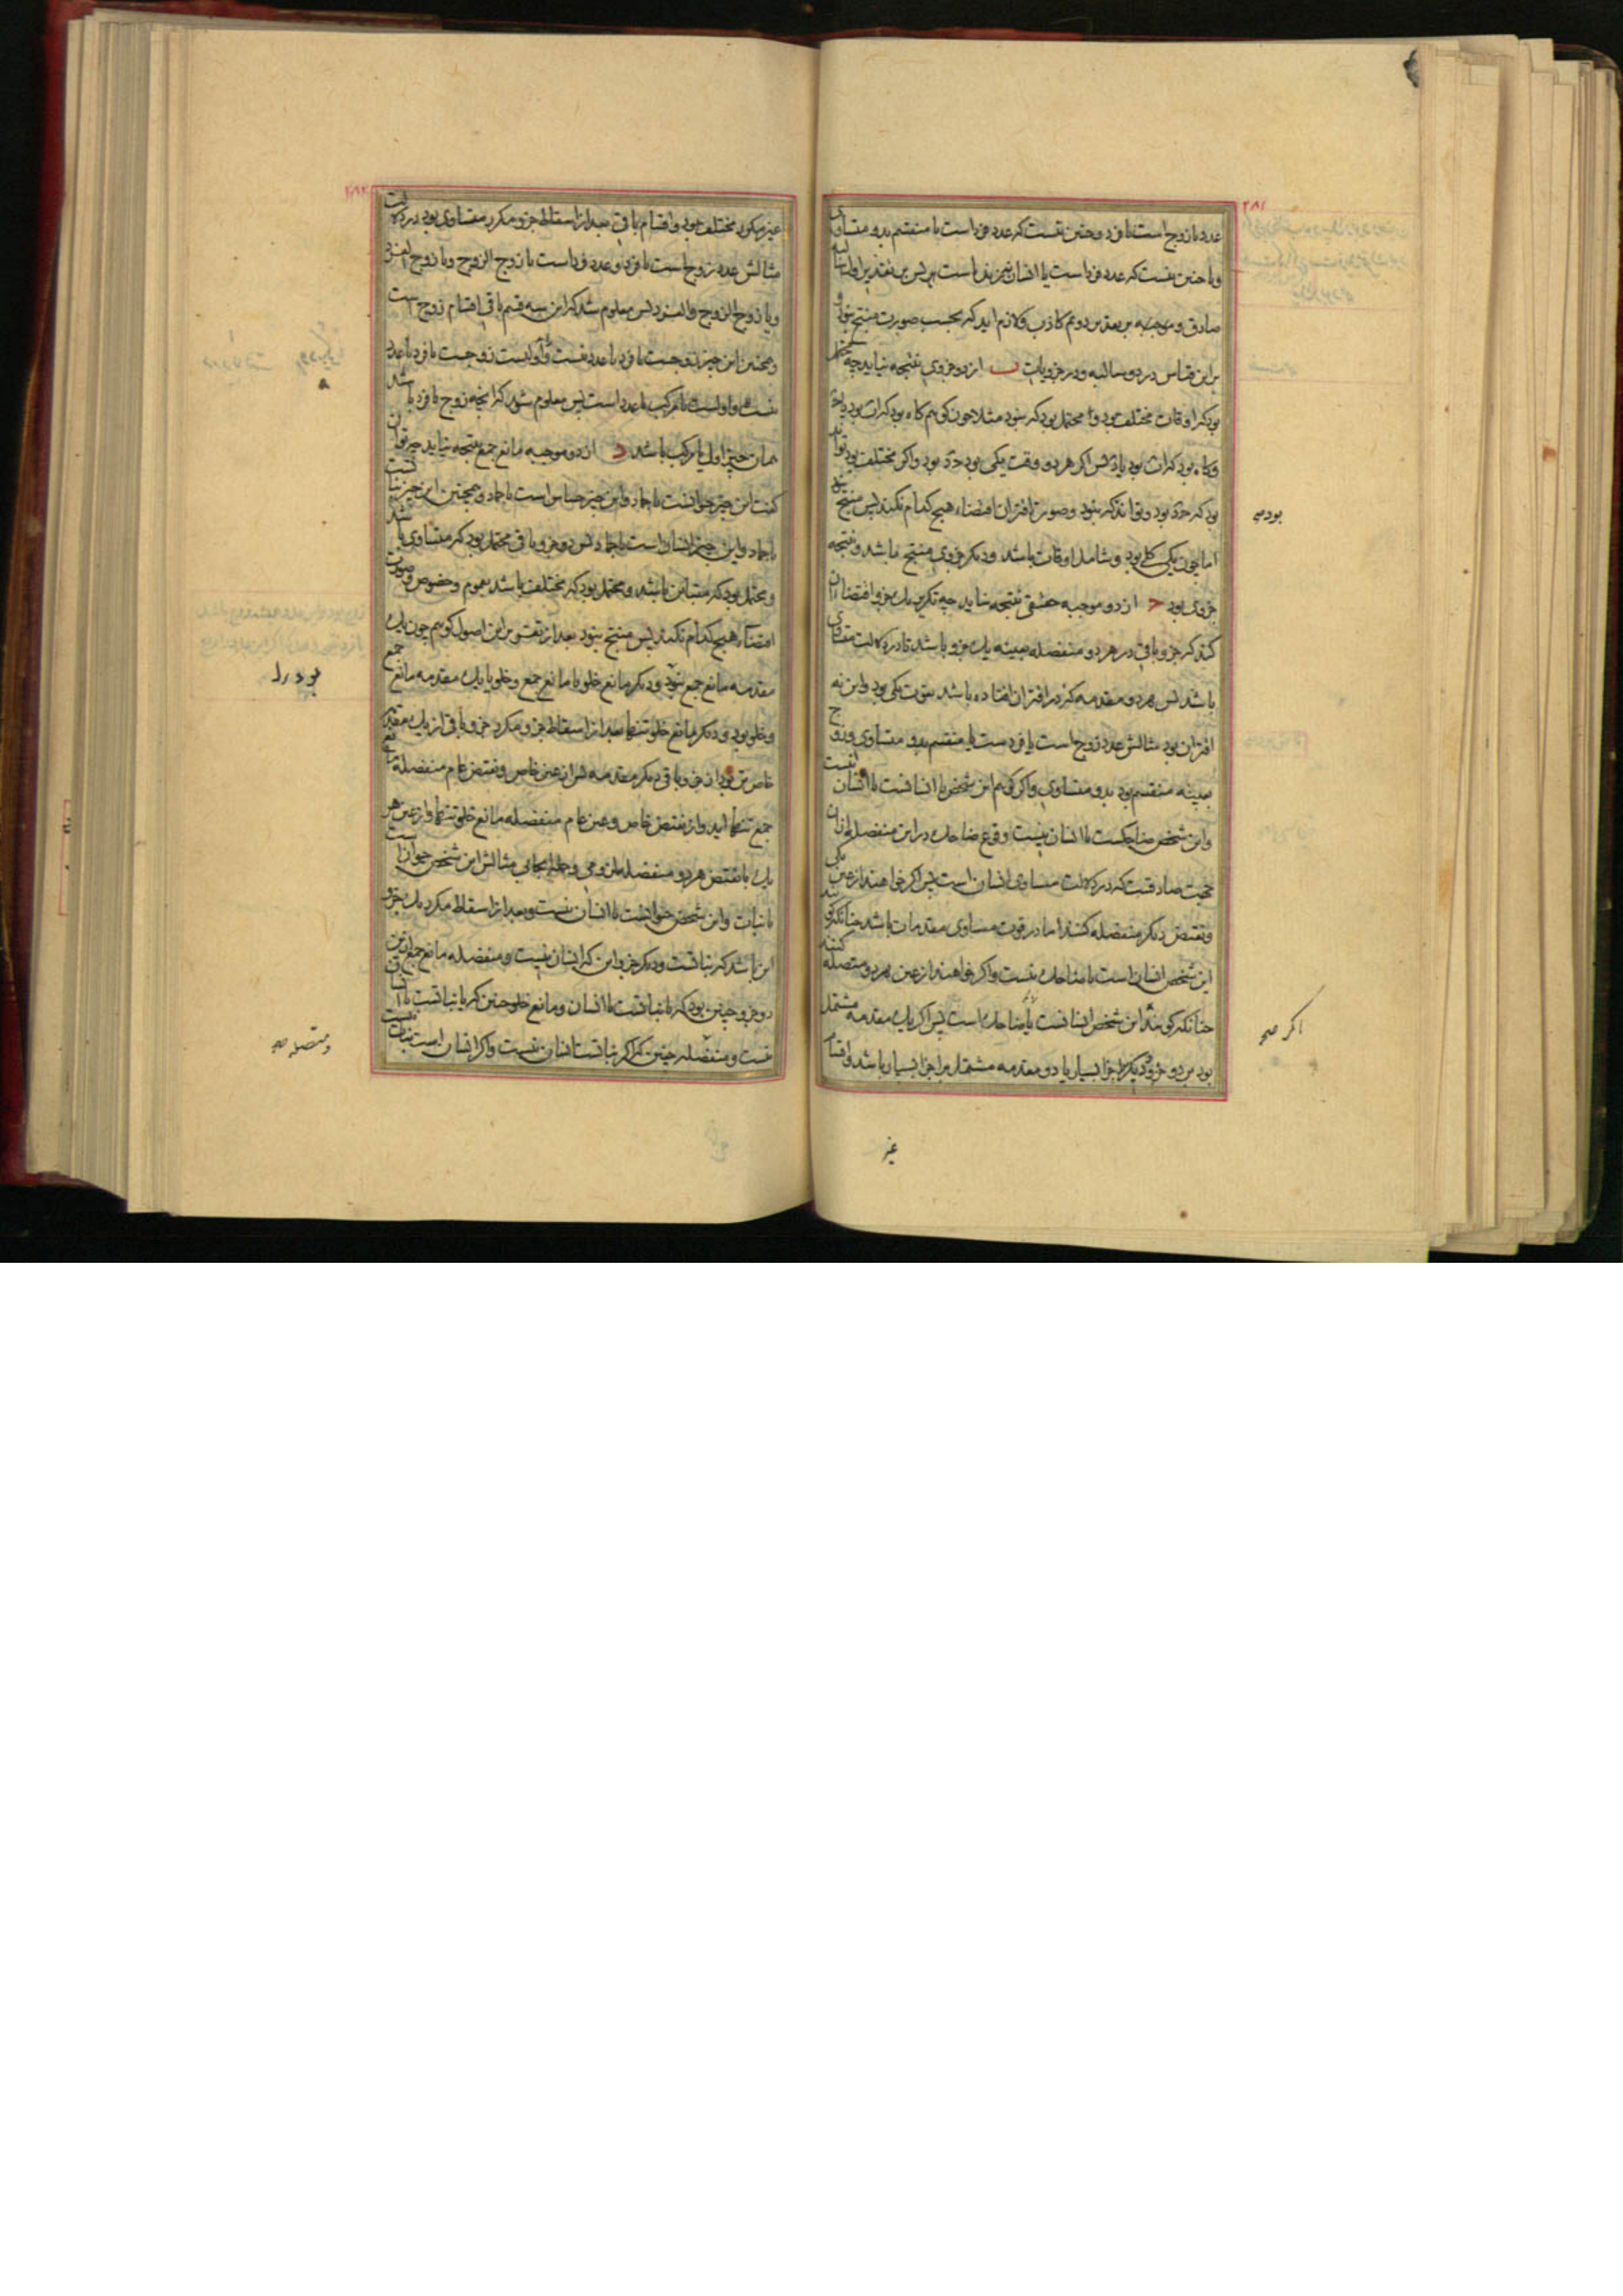 ۲۸۱
عدد یا زوج است یا فرد و چنین نیست که عدد فرد است یا منقسم بدو متساوی
و یا چنین نیست که عدد فرد است یا انسان نیز بنداست پس بر تقدیر اول سالبه
صادق و موجبه بر تقدیر دوم کاذب و لازم اید که بحسب صورت منتج نبود و
بر این قیاس در دو سالبه و در جزویات ب از دو جزوی نتیجه نیاید چه محتمل
بود که اوقات مختلف بود و محتمل بود که نبود مثلا چون کوئیم کاه بود کرات بود یا ح‌د
و کاه بود کرات بود یا د پس اکر هر دو وقت یکی بود ح‌د بود و اکر مختلف بود تواند
بود که ح‌د بود و تواند که نبود و صورت اقتران اقتضاء هیچ کدام نکند پس منتج نبود
اما چون یکی کلی بود و شامل اوقات باشد و دیکر جزوی منتج باشد و نتیجه
جزوی بود ج از دو موجبه حقیقی نتیجه نیاید چه تکریر یک جزو اقتضاء ان
کند که جزو باقی در هر دو منفصله بعینه یک جزو باشد یا در دلالت متساوی
باشد پس هر دو مقدمه که در اقتران افتاده باشد بقوت یکی بود و این نه
اقتران بود مثالش عدد زوج است یا فردست یا منقسم بدو متساوی و زوج
بعینه منقسم بود بدو متساوی و اکر کوئیم این شخص یا انسانست یا لاانسان
و این شخص ضاحکست یا انسان نیست وقوع ضاحک در این منفصله از ان
جهت صادقست که در دلالت مساوی انسان است پس اکر خواهند از عین یکی
و نقیض دیکر منفصله کنند اما در قوت مساوی مقدمات باشد چنانکه کویند
این شخص انسان است یا ضاحک نیست و اکر خواهند از عین هر دو متصله کنند
چنانکه کویند این شخص انسانست یا ضاحک است پس اکر یک مقدمه مشتمل
بود بر دو جزو و دیکر بر اجزا بسیار یا دو مقدمه مشتمل بر اجزا بسیار باشد و اقسام
بود صح
اکر صح
غیر
۲۸۲
غیر مکرر مختلف بود و اقسام باقی بعد از اسقاط جزو مکرر متساوی بود در دلالت
مثالش عدد زوج است یا فرد و عدد فرد است یا زوج الزوج و یا زوج الفرد
و یا زوج الزوج و الفرد پس معلوم شد که این سه قسم باقی اقسام زوج است
و همچنین این چیز زوجست یا فرد یا عدد نیست و اولست زوجست یا فرد یا عدد
نیست و اولست یا مرکب یا عدد است پس معلوم شود که انچه زوج یا فرد باشد
همان چیز اول یا مرکب باشد د از دو موجبه مانع جمع نتیجه نیاید چه توان
کفت این چیز حیوانست یا جماد و این چیز حساس است یا جماد و همچنین این چیز نباتست
یا جماد و این چیز انسان است یا جماد پس دو جزو باقی محتمل بود که متساوی باشد
و محتمل بود که متباین باشد و محتمل بود که مختلف باشد بعموم و خصوص و صورت
اقتضاء هیچ کدام نکند پس منتج نبود بعد از تقسیم بر این اصول کوئیم چون یک
مقدمه مانع جمع بود و دیکر مانع خلو یا مانع جمع و خلو یا یک مقدمه مانع جمع
و خلو بود و دیکر مانع خلو تنها بعد از اسقاط جزو مکرر جزو باقی از یک مقدمه
خاص تر بود از جزو باقی دیکر مقدمه پس از عین خاص و نقیض عام منفصله مانع
جمع تنها اید و از نقیض خاص و عین عام منفصله مانع خلو تنها و از عین هر
یک با نقیض هر دو منفصله لزومی و حملی ایجابی مثالش این شخص حیوان است
یا نبات و این شخص حیوانست یا انسان نیست و بعد از اسقاط مکرر یک جزو
این باشد که نباتست و دیکر جزو این که انسان نیست و منفصله مانع جمع از این
دو جزو چنین بود که یا نباتست یا انسان و مانع خلو چنین که یا نباتست یا انسان
نیست و متصله چنین که اکر نباتست انسان نیست و اکر انسان است نبات نیست
بود را
و متصله صح